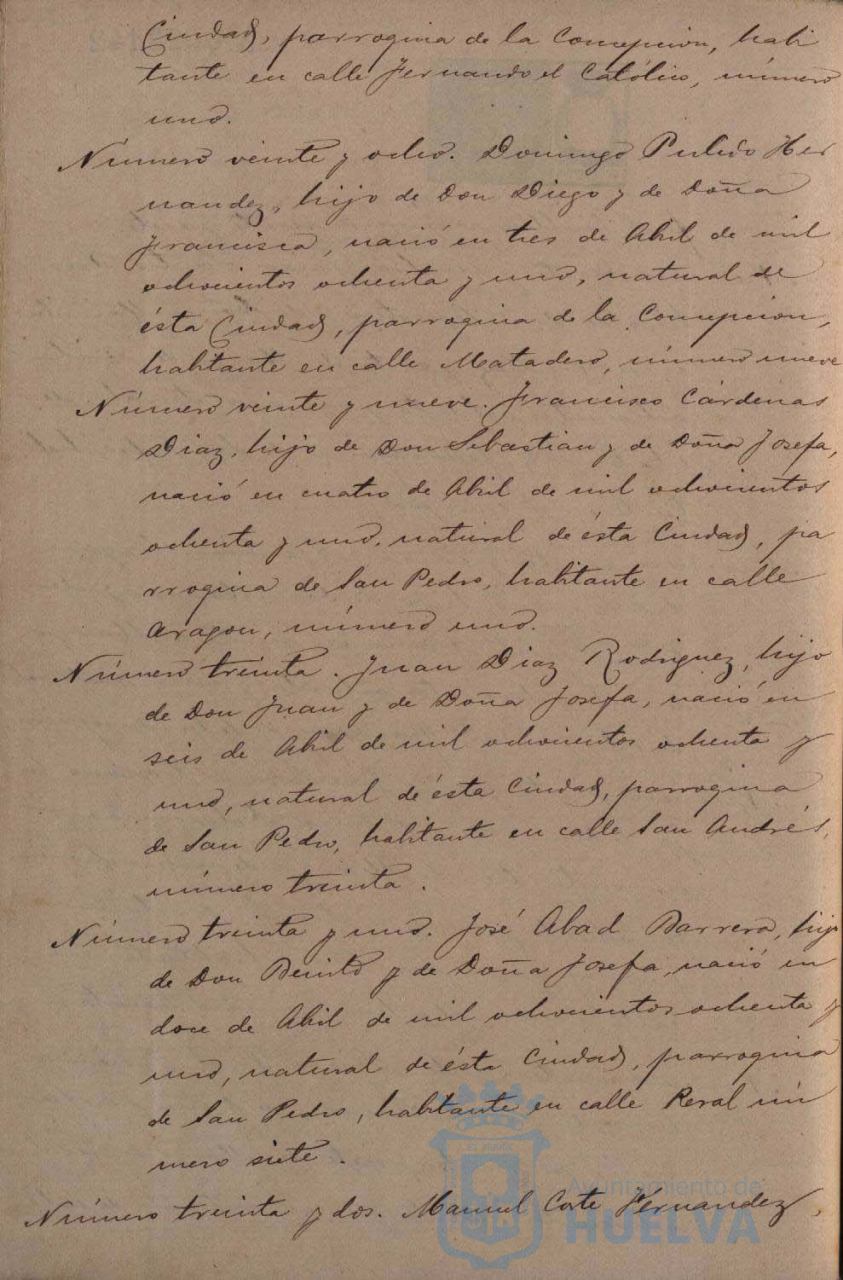 Ciudad, parroquia de la Concepcion, habi
tante en calle Fernando el Católico, número
uno.
Número veinte y ocho. Domingo Pulido Her
nandez, hijo de Don Diego y de Doña
Francisca, nació en tres de Abril de mil
ochocientos ochenta y uno, natural de
ésta Ciudad, parroquia de la Concepcion,
habitante en calle Matadero, número nueve
Número veinte y nueve. Francisco Cárdenas
Diaz, hijo de Don Sebastian y de Doña Josefa,
nació en cuatro de Abril de mil ochocientos
ochenta y uno, natural de ésta Ciudad, pa
rroquia de San Pedro, habitante en calle
Aragon, número uno.
Número treinta. Juan Diaz Rodriguez, hijo
de Don Juan y de Doña Josefa, nació en
seis de Abril de mil ochocientos ochenta y
uno, natural de ésta Ciudad, parroquia
de San Pedro, habitante en calle San Andrés,
número treinta.
Número treinta y uno. José Abad Barrera, hijo
de Don Benito y de Doña Josefa, nació en
doce de Abril de mil ochocientos ochenta y
uno, natural de ésta Ciudad, parroquia
de San Pedro, habitante en calle Peral nú
mero siete.
Número treinta y dos. Manuel Corte Fernandez,
Ayuntamiento de
HUELVA